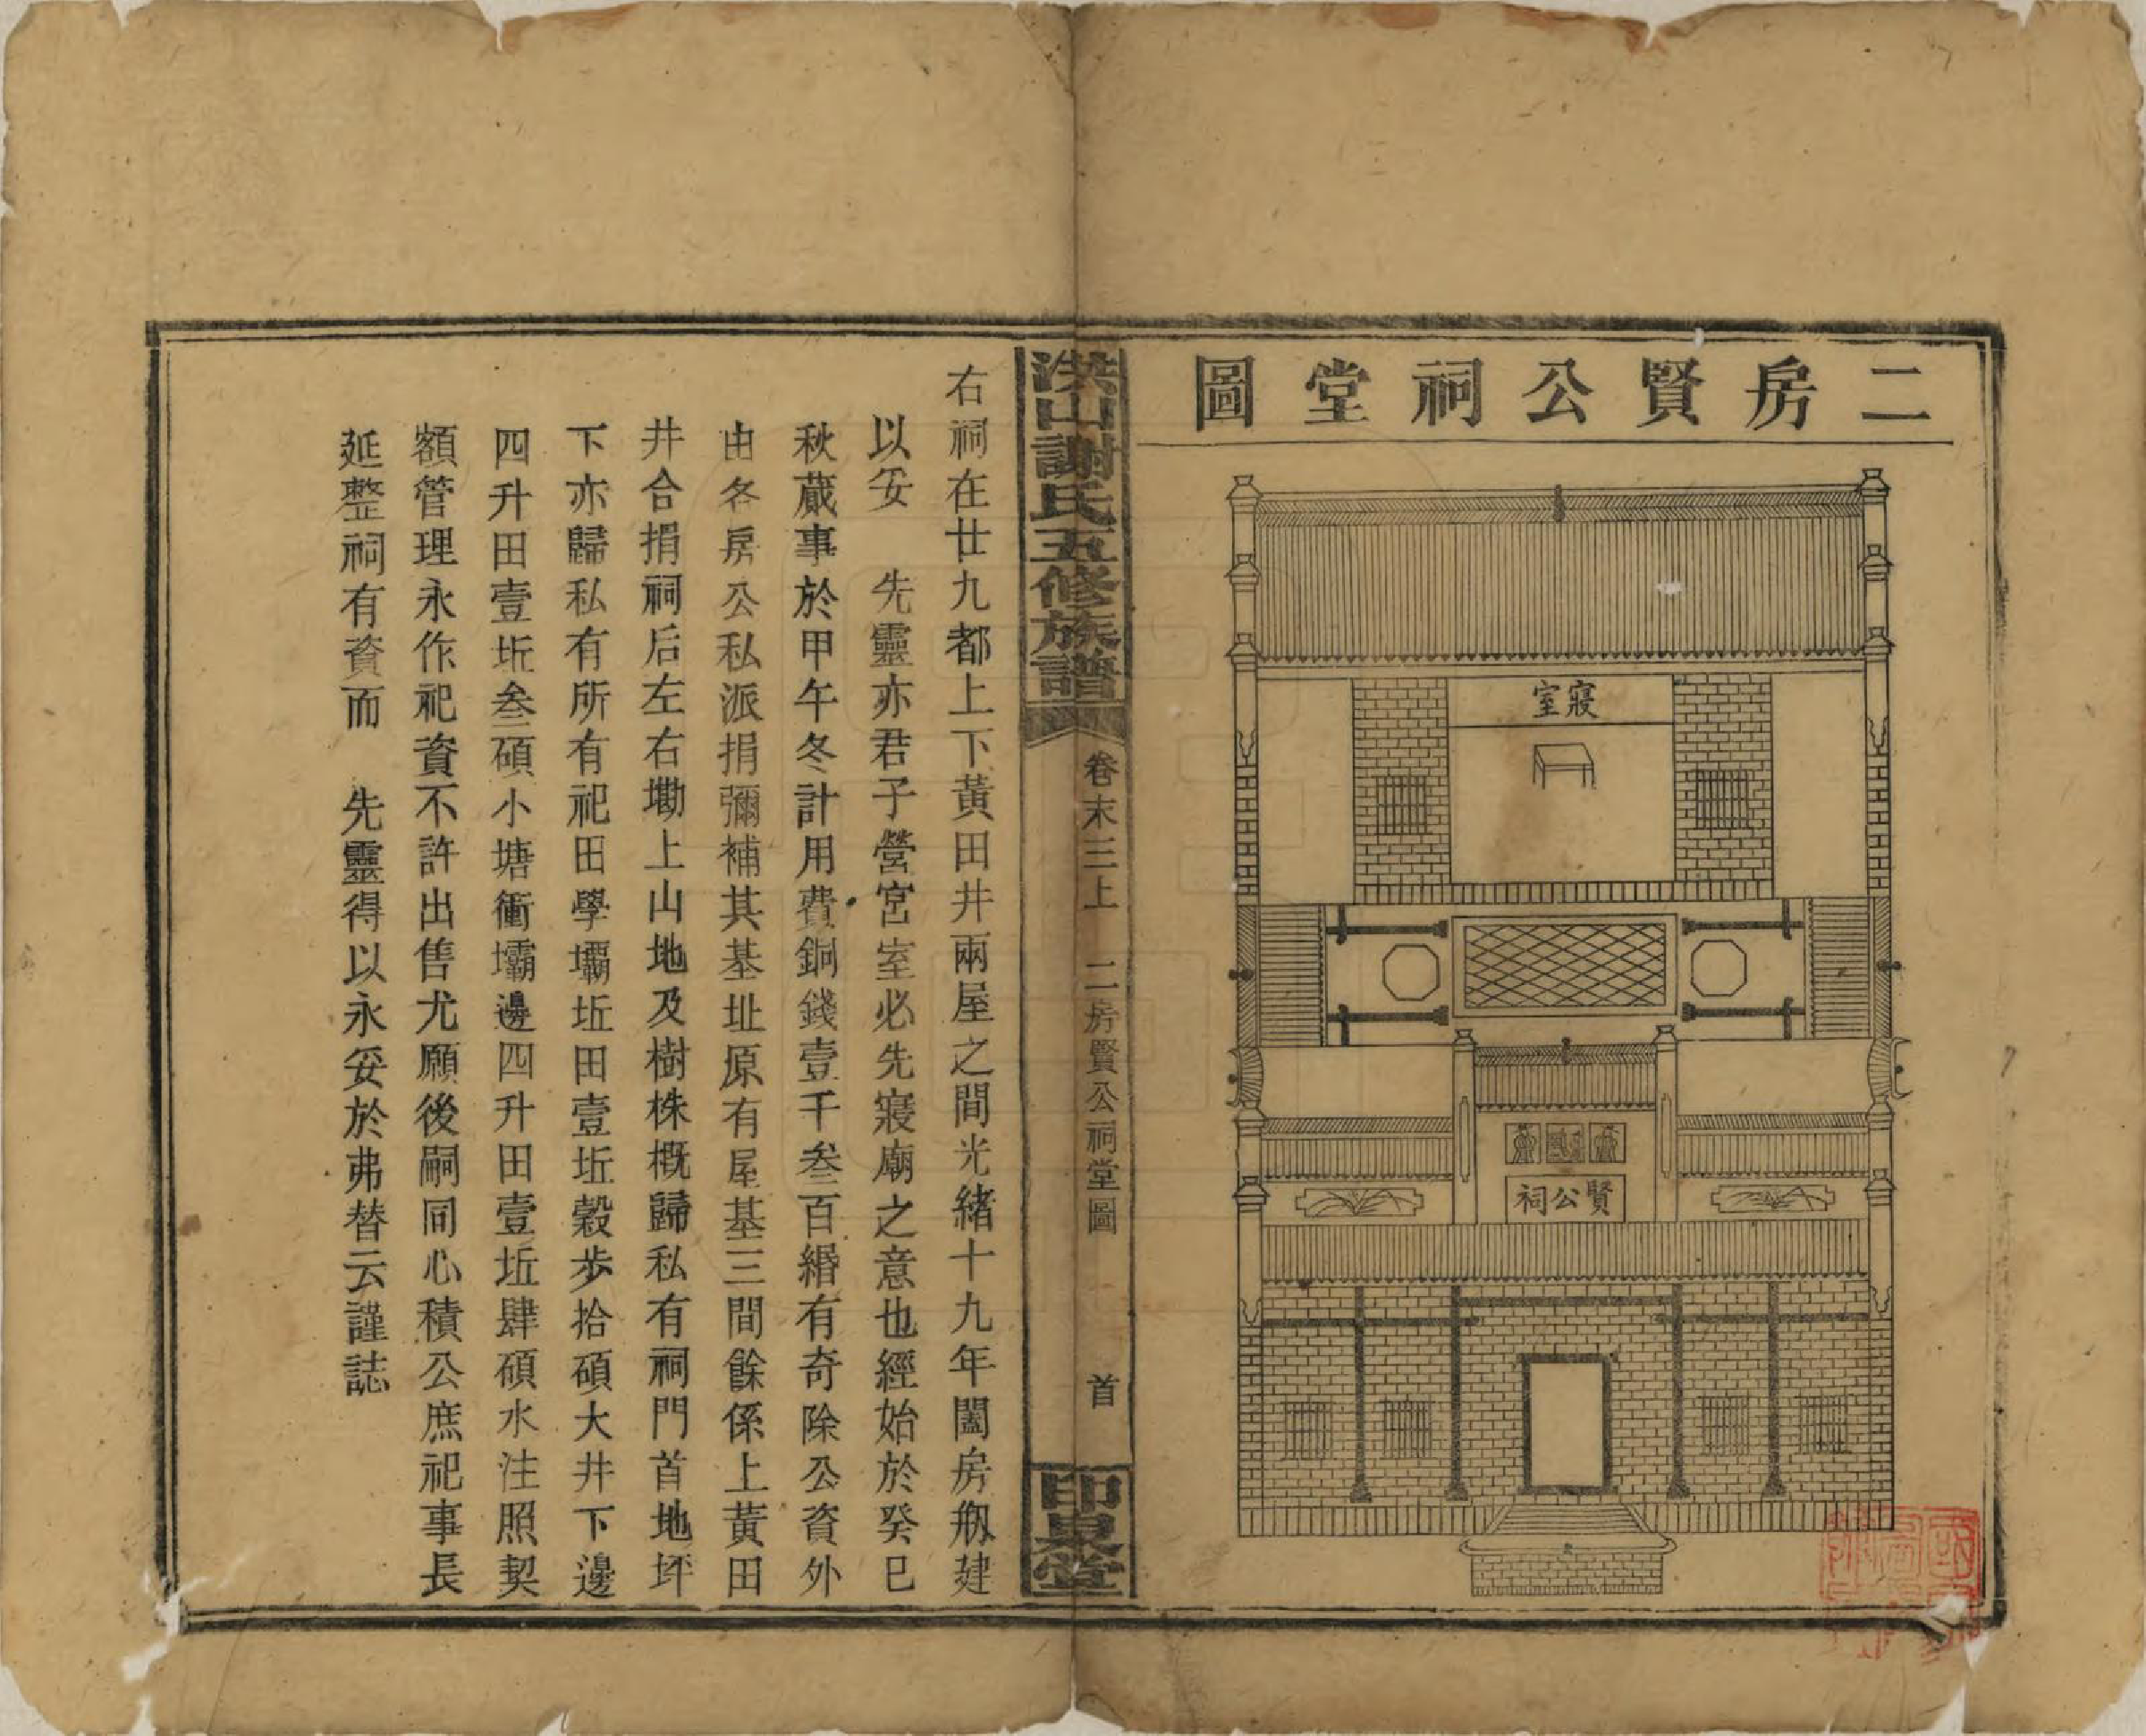 二房賢公祠堂圖
寢室
賢公祠
洪山謝氏五修族譜
卷末三上　二房賢公祠堂圖
首
印泉堂
右祠在廿九都上下黃田井兩屋之間光緒十九年闔房剏建
以妥　先靈亦君子營宮室必先寢廟之意也經始於癸巳
秋蕆事於甲午冬計用費銅錢壹千叁百緡有奇除公資外
由各房公私派捐彌補其基址原有屋基三間餘係上黃田
井合捐祠后左右墈上山地及樹株概歸私有祠門首地坪
下亦歸私有所有祀田學壩坵田壹坵穀步拾碩大井下邊
四升田壹坵叁碩小塘衝壩邊四升田壹坵肆碩水注照契
額管理永作祀資不許出售尤願後嗣同心積公庶祀事長
延整祠有資而　先靈得以永妥於弗替云謹誌